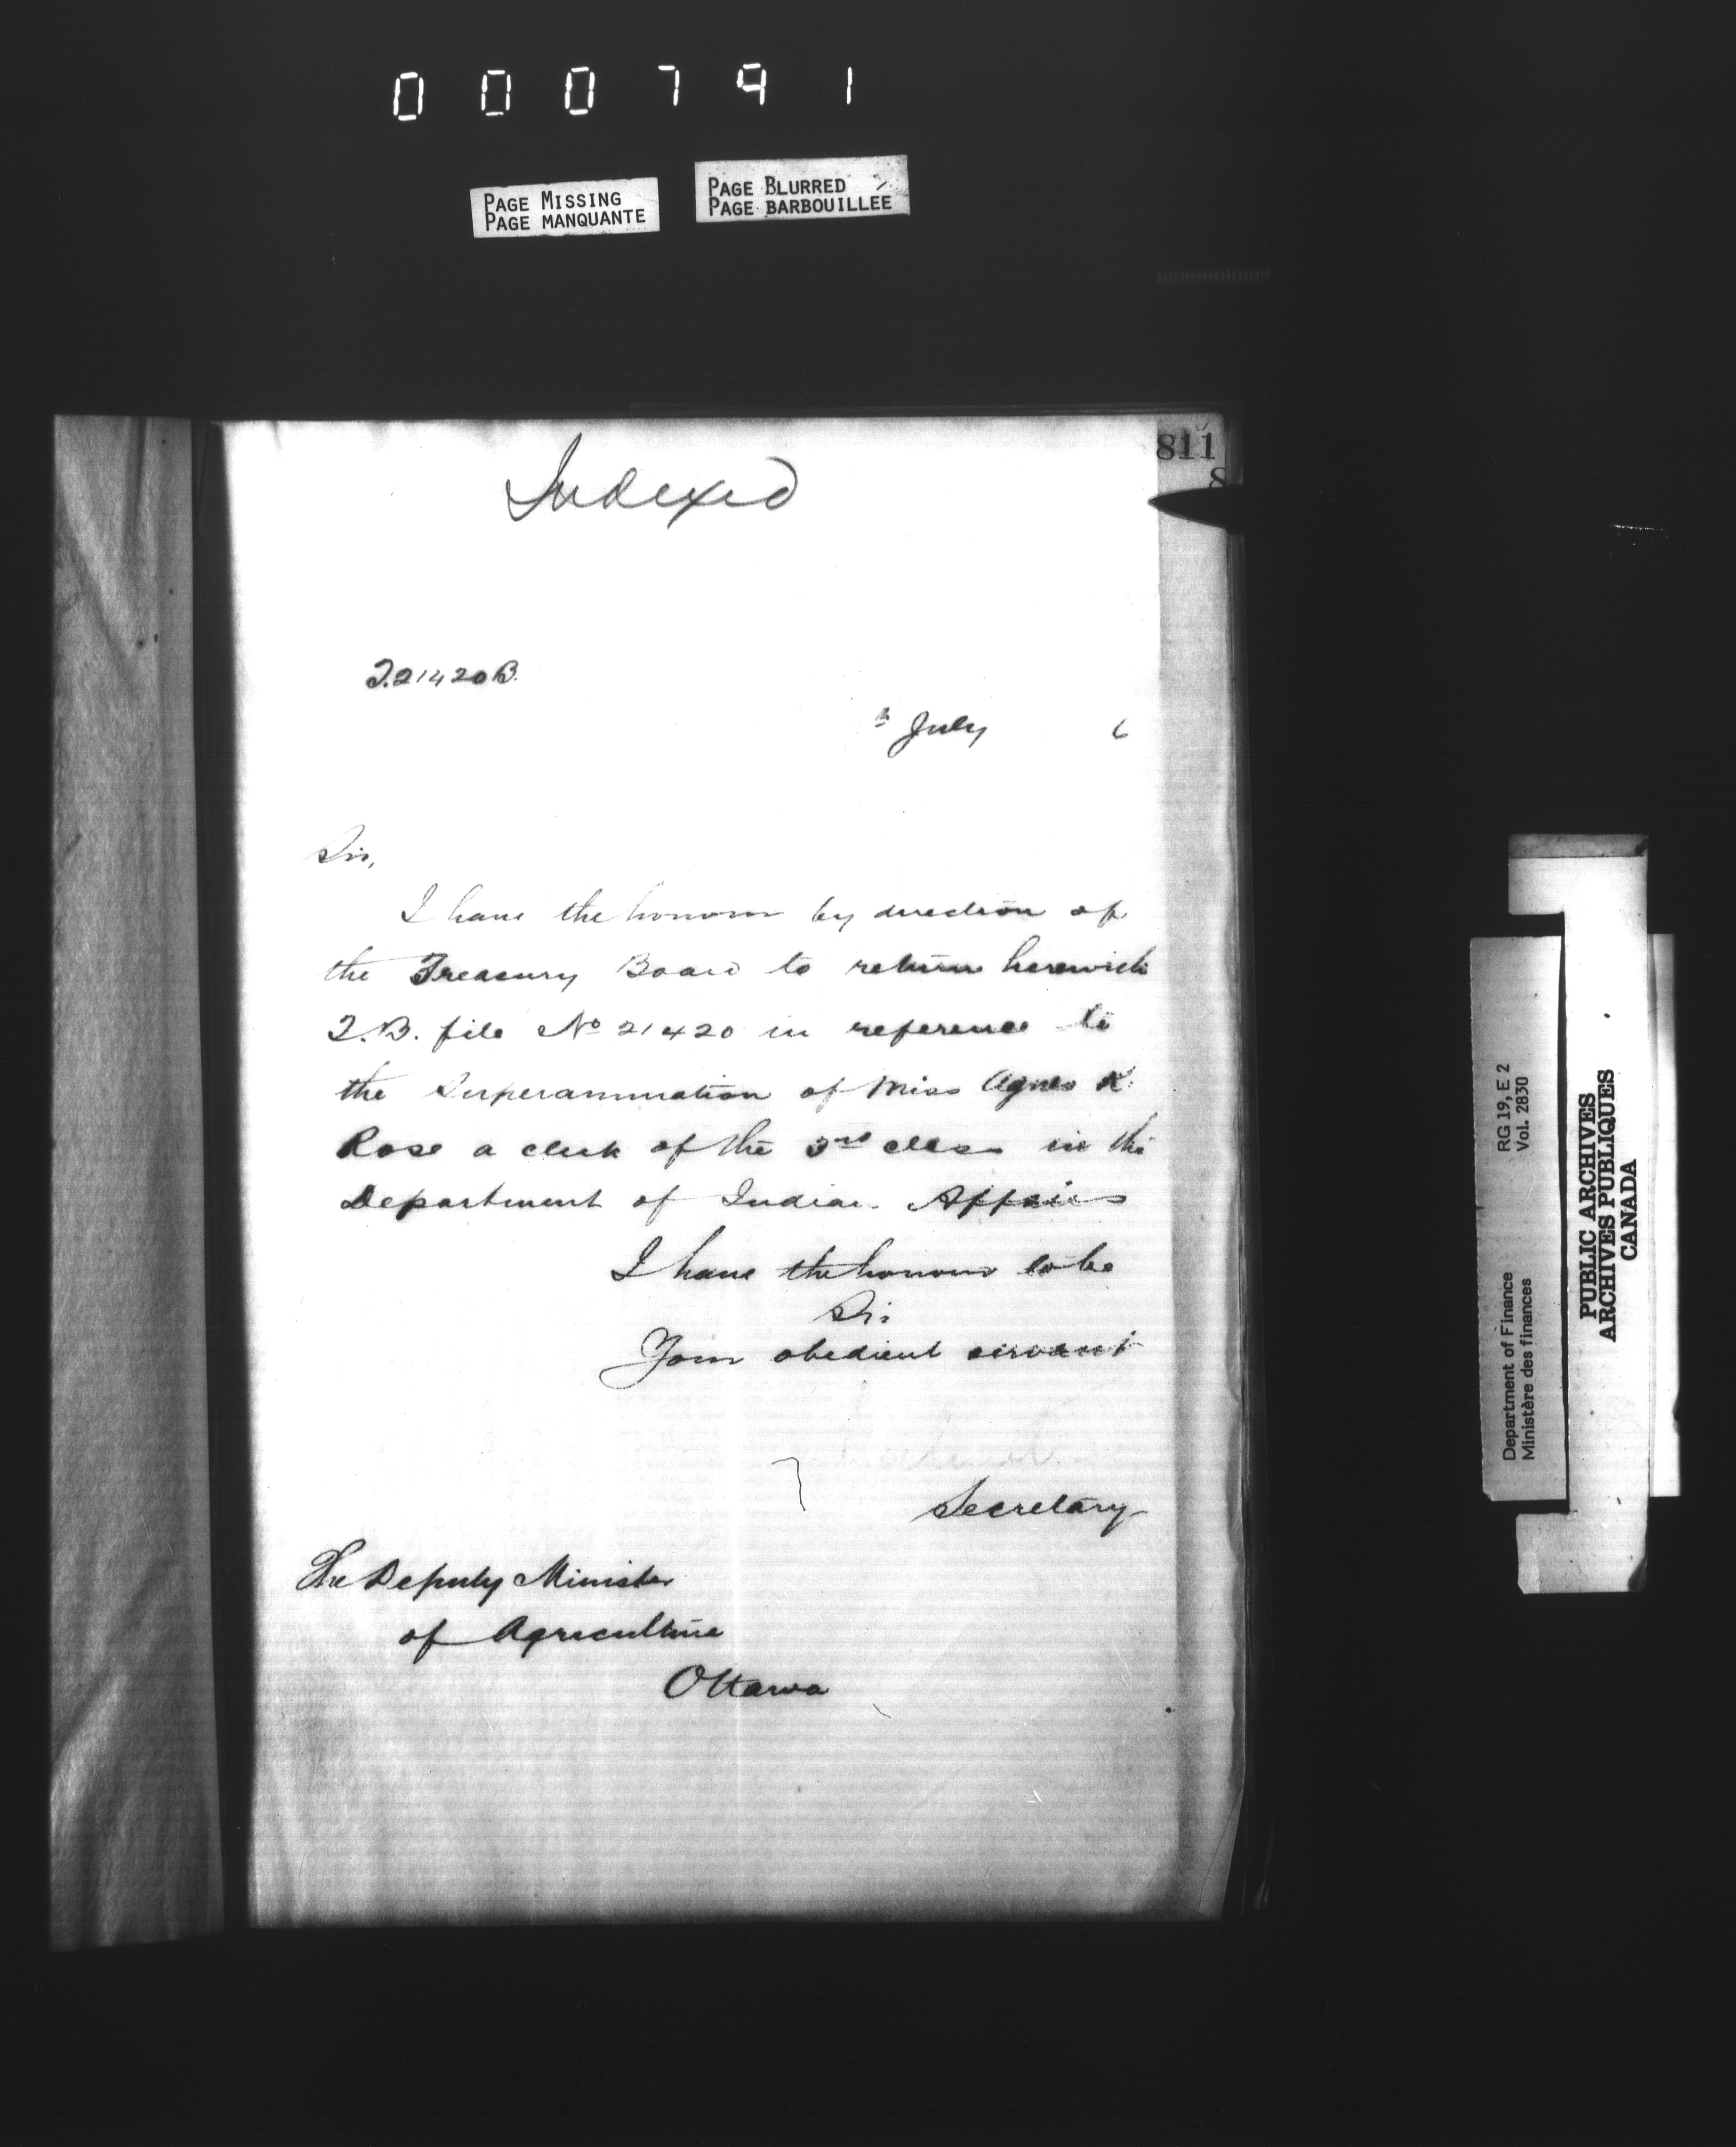 000791
PAGE MISSING
PAGE MANQUANTE
PAGE BLURRED
PAGE BARBOUILLÉE
811
8
Indexed
T.21420B.
July 6
Sir,
I have the honour by direction of
the Treasury Board to return herewith
T.B. file No 21420 in reference to
the Superannuation of Miss Agnes K.
Rose a clerk of the 3rd class in the
Department of Indian Affairs
I have the honour to be
Sir
Your obedient servant
Secretary
The Deputy Minister
of Agriculture
Ottawa
Department of Finance
Ministère des finances
RG 19, E 2
Vol. 2830
PUBLIC ARCHIVES
ARCHIVES PUBLIQUES
CANADA